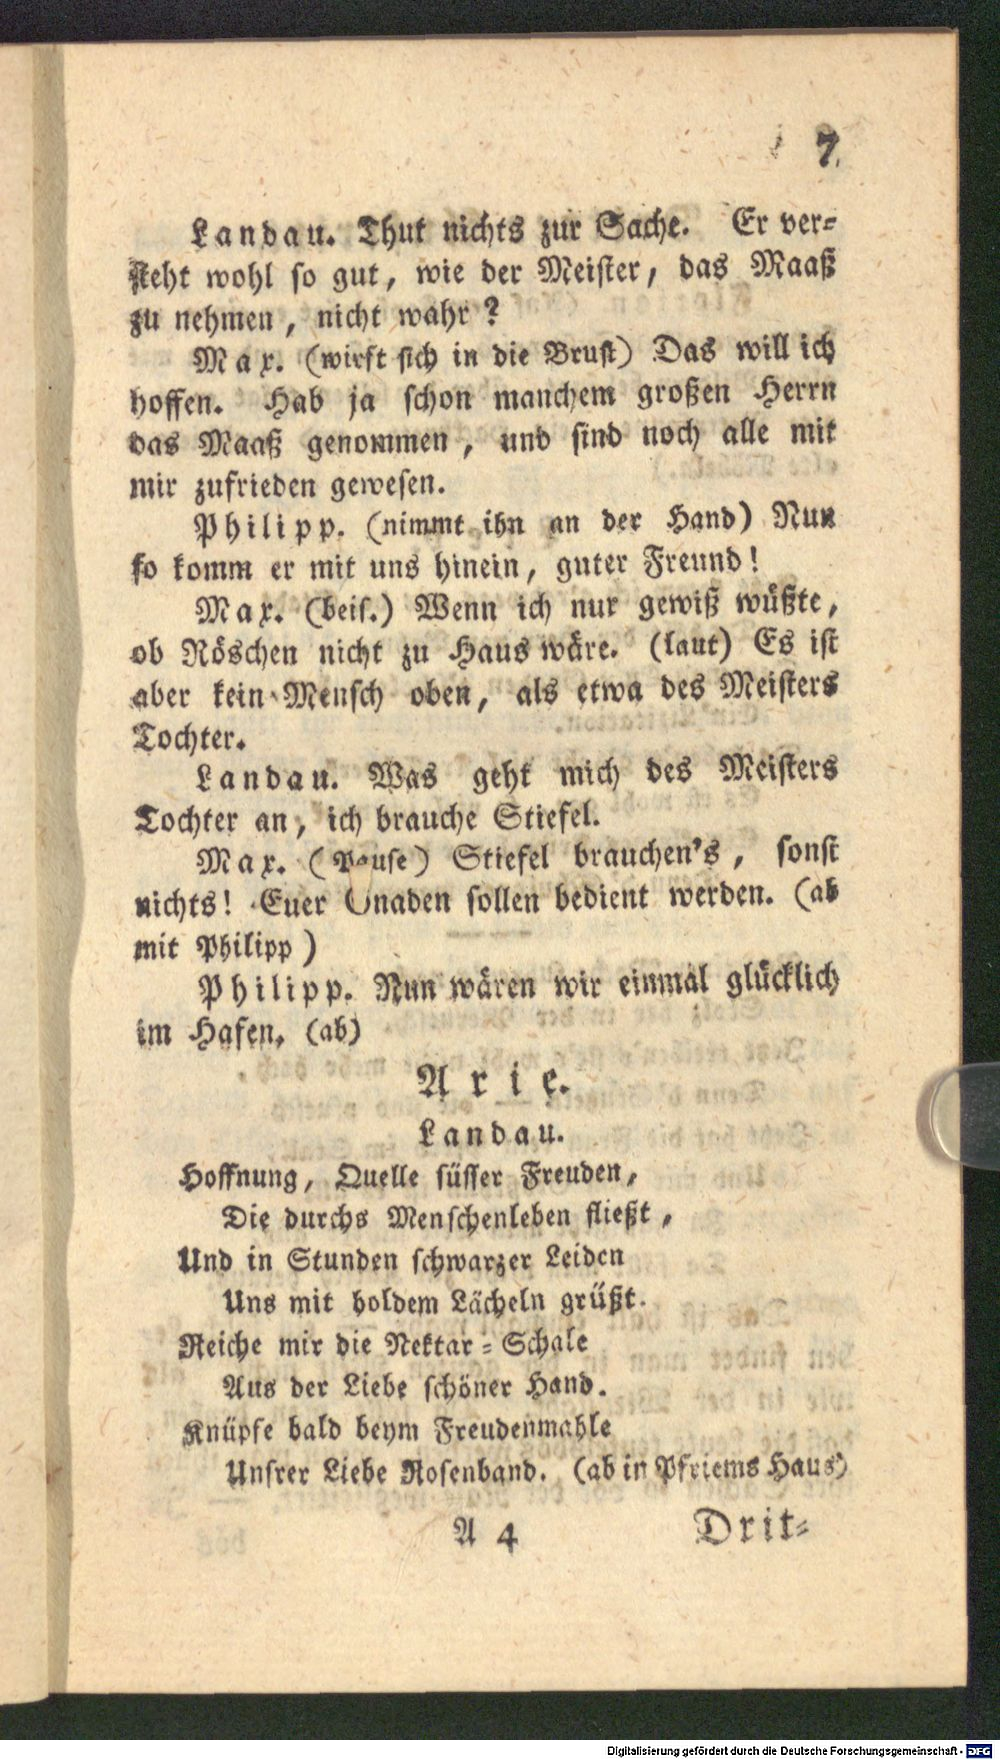 7.
Landau. Thut nichts zur Sache. Er ver-
steht wohl so gut, wie der Meister, das Maaß
zu nehmen, nicht wahr?
Max. (wirft sich in die Brust) Das will ich
hoffen. Hab ja schon manchem großen Herrn
das Maaß genommen, und sind noch alle mit
mir zufrieden gewesen.
Philipp. (nimmt ihn an der Hand) Nun
so komm er mit uns hinein, guter Freund!
Max. (beis.) Wenn ich nur gewiß wüßte,
ob Röschen nicht zu Haus wäre. (laut) Es ist
aber kein Mensch oben, als etwa des Meisters
Tochter.
Landau. Was geht mich des Meisters
Tochter an, ich brauche Stiefel.
Max. (Pause) Stiefel brauchen's, sonst
nichts! Euer Gnaden sollen bedient werden. (ab
mit Philipp)
Philipp. Nun wären wir einmal glücklich
im Hafen. (ab)
Arie.
Landau.
Hoffnung, Quelle süsser Freuden,
Die durchs Menschenleben fließt,
Und in Stunden schwarzer Leiden
Uns mit holdem Lächeln grüßt.
Reiche mir die Nektar-Schale
Aus der Liebe schöner Hand.
Knüpfe bald beym Freudenmahle
Unsrer Liebe Rosenband. (ab in Pfriems Haus)
A 4 Drit-
Digitalisierung gefördert durch die Deutsche Forschungsgemeinschaft - DFG